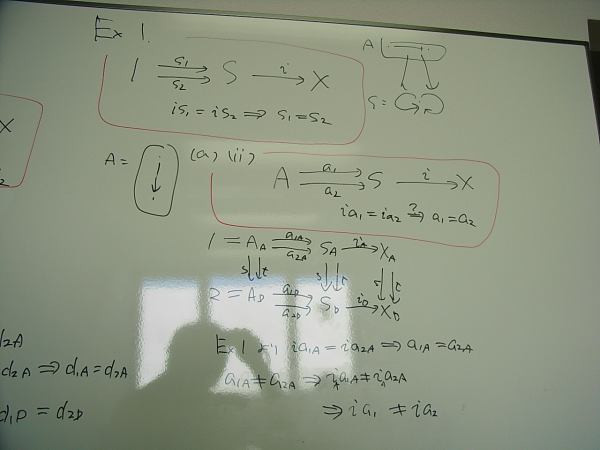 Ex 1.
1 ⇉ S → X
s₁
s₂
i
is₁ = is₂ ⇒ s₁ = s₂
A
S =
X
A =
(a) (ii)
A ⇉ S → X
a₁
a₂
i
ia₁ = ia₂ ⇒? a₁ = a₂
1 = A_A ⇉ S_A → X_A
a₁A
a₂A
i_A
s t
2 = A_D ⇉ S_D → X_D
a₁D
a₂D
i_D
Ex 1 より ia₁A = ia₂A ⇒ a₁A = a₂A
a₁A ≠ a₂A ⇒ i_A a₁A ≠ i_A a₂A
⇒ ia₁ ≠ ia₂
d₂A
d₂A ⇒ d₁A = d₂A
d₁D = d₂D